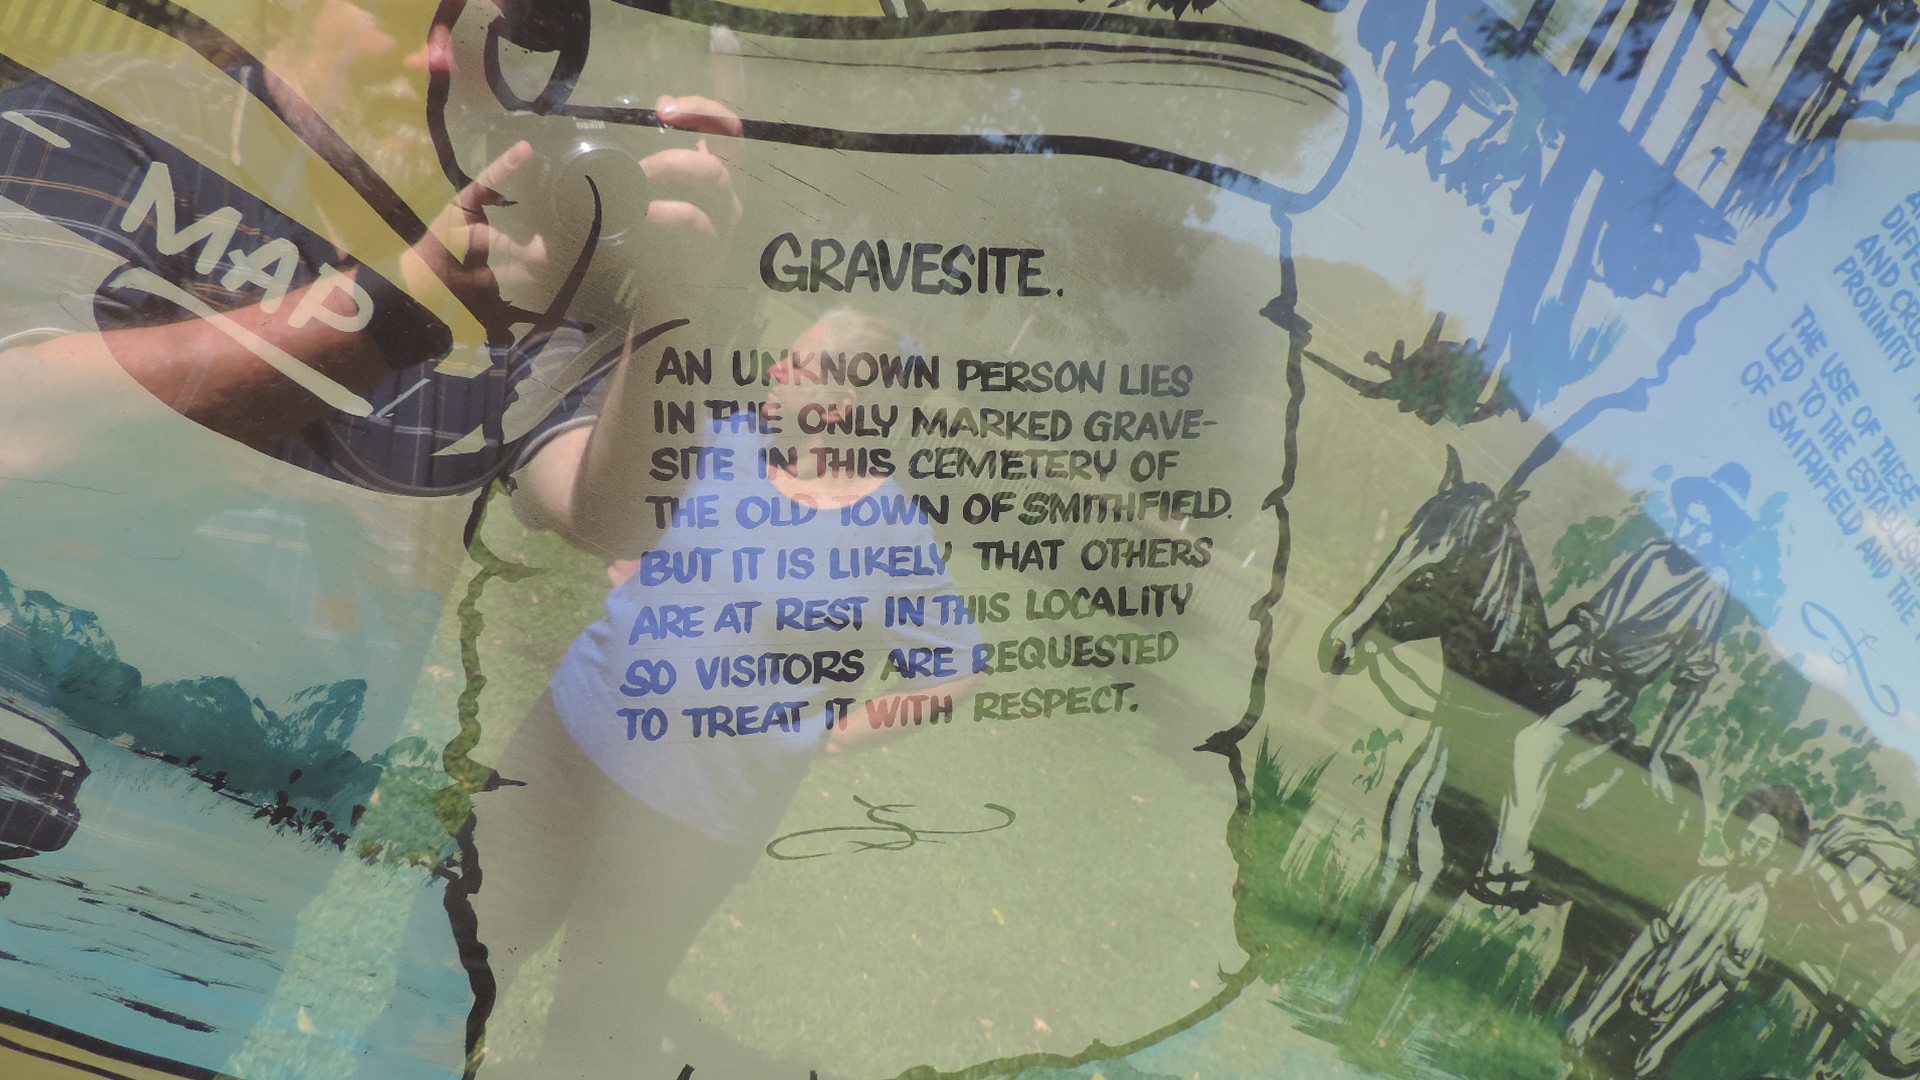 MAP
GRAVESITE.
AN UNKNOWN PERSON LIES
IN THE ONLY MARKED GRAVE-
SITE IN THIS CEMETERY OF
THE OLD TOWN OF SMITHFIELD.
BUT IT IS LIKELY THAT OTHERS
ARE AT REST IN THIS LOCALITY
SO VISITORS ARE REQUESTED
TO TREAT IT WITH RESPECT.
AND
PROXIMITY
THE USE OF THESE
LED TO THE
OF SMITHFIELD AND THE
Nikon